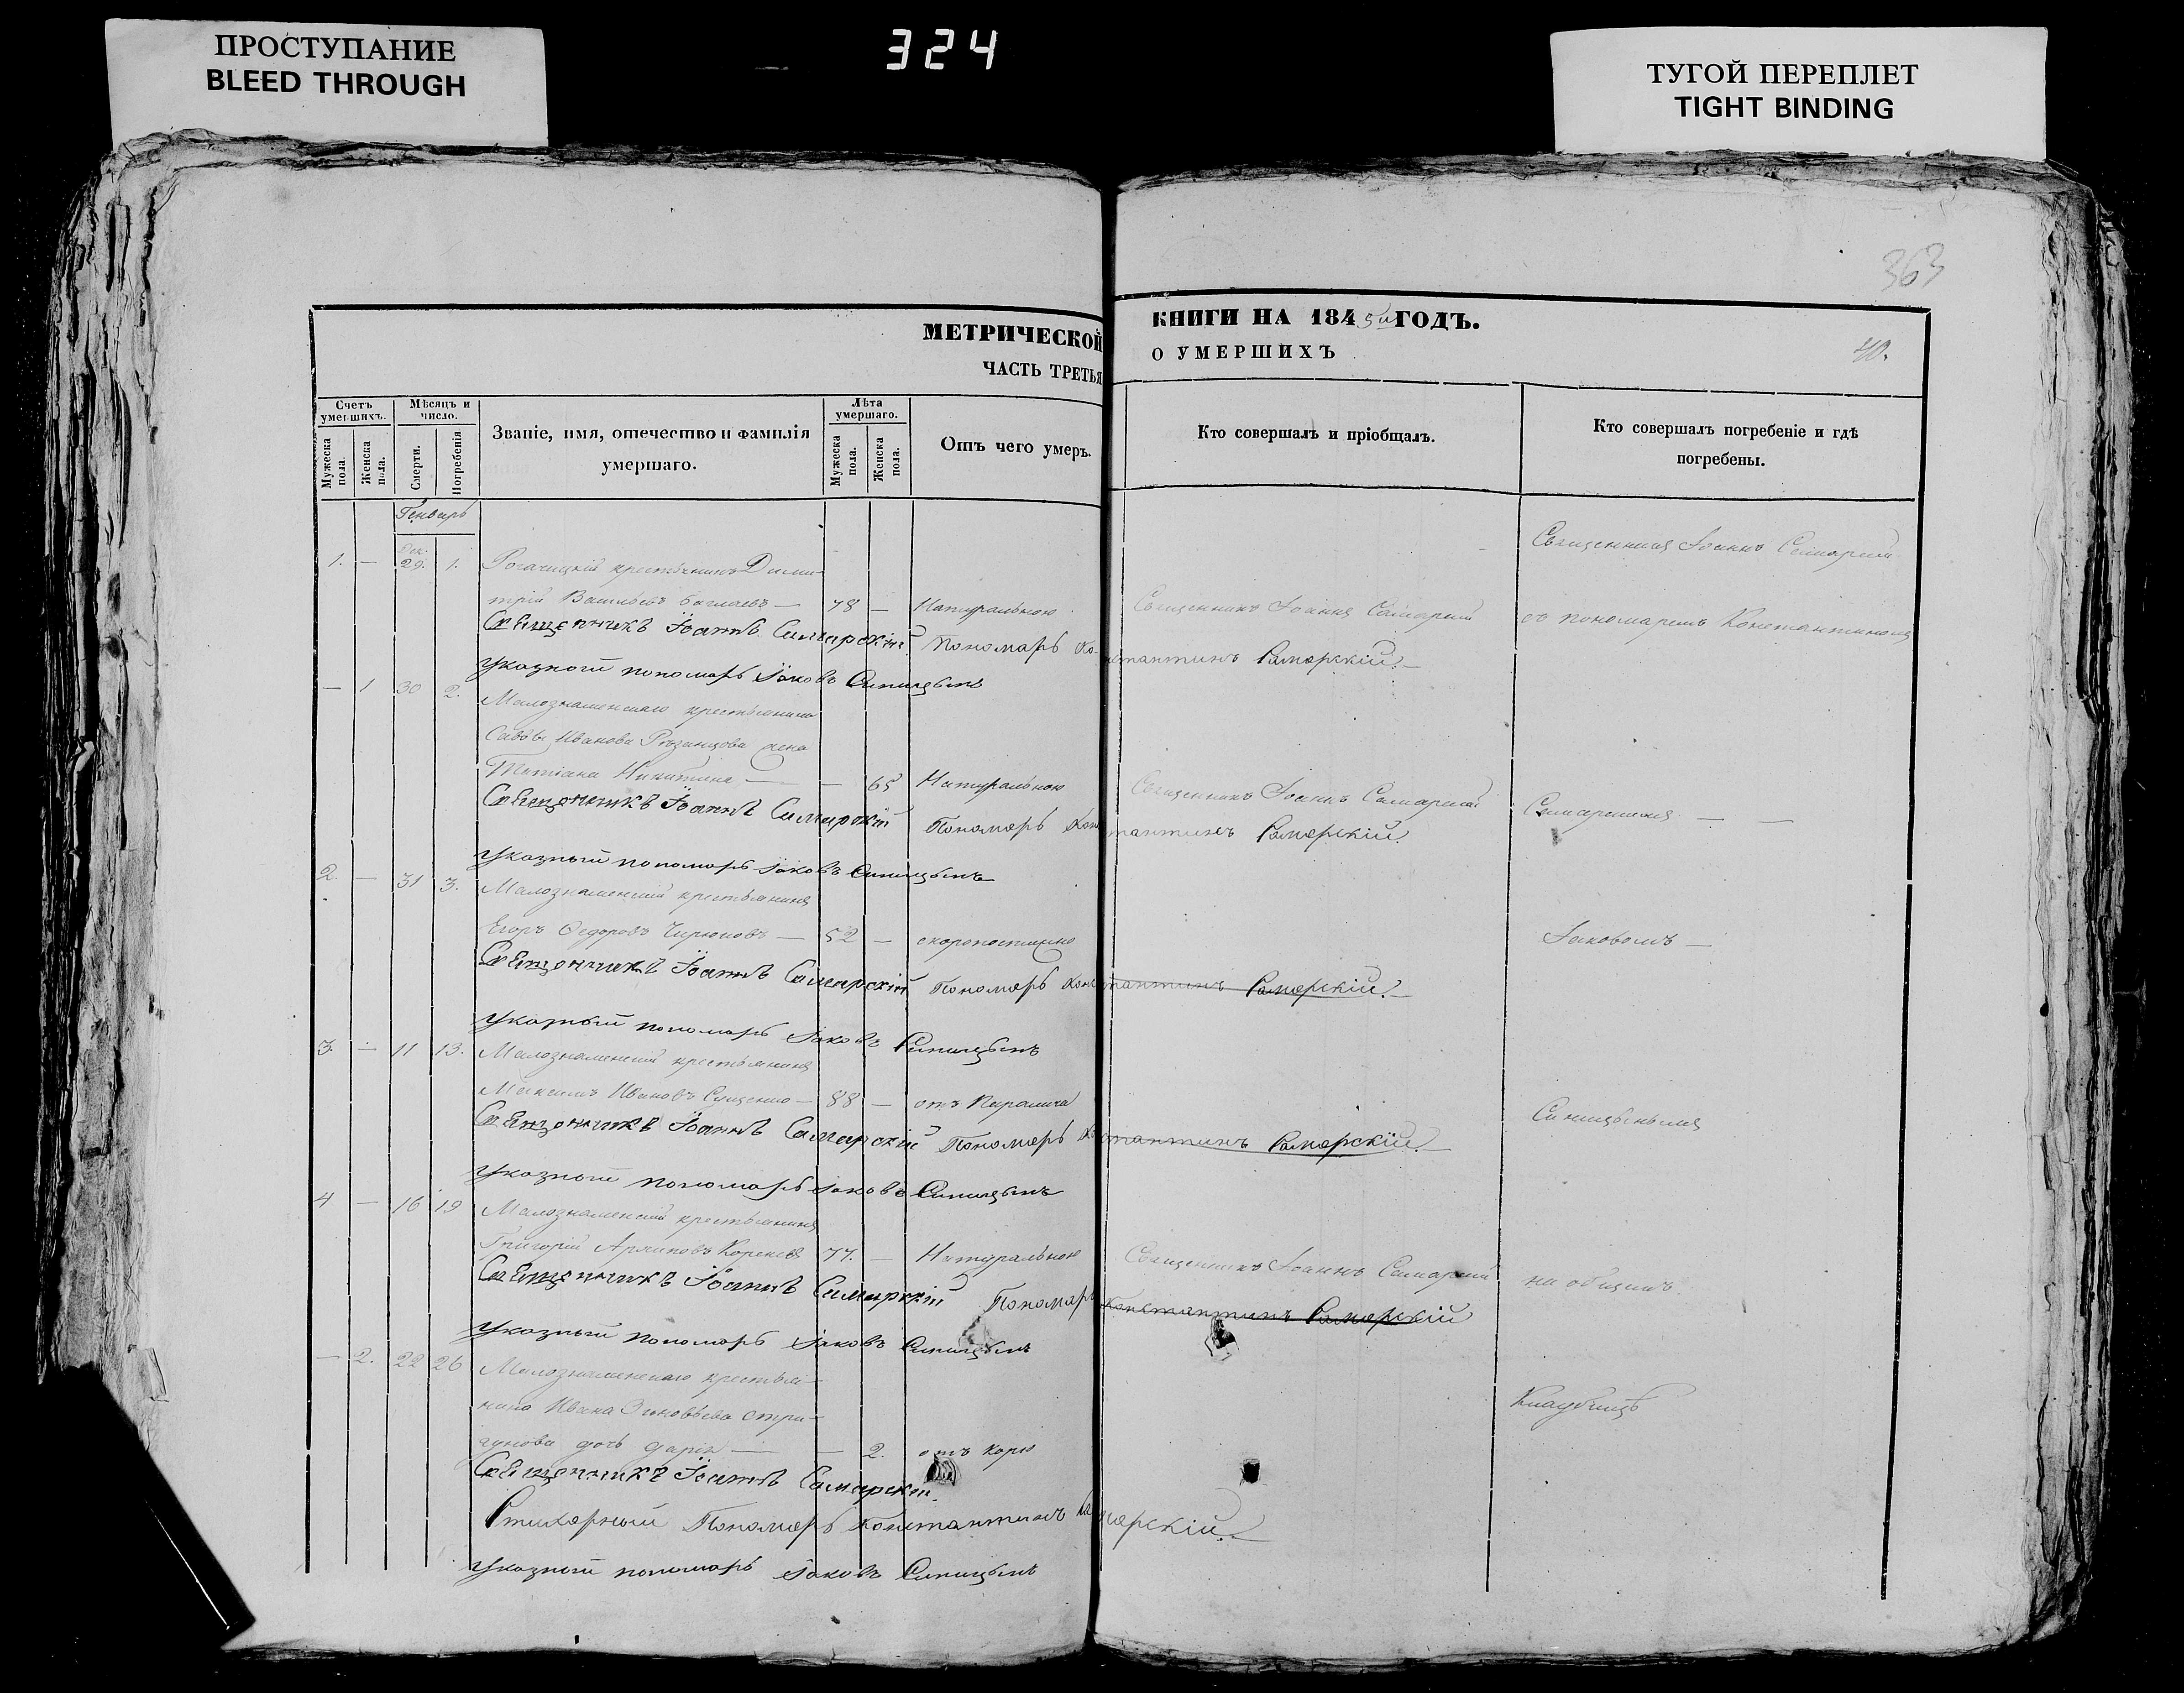 ПРОСТУПАНИЕ
BLEED THROUGH
324
ТУГОЙ ПЕРЕПЛЕТ
TIGHT BINDING
363
МЕТРИЧЕСКОЙ КНИГИ НА 1845й ГОДЪ.
ЧАСТЬ ТРЕТЬЯ О УМЕРШИХЪ
40.
Счетъ умершихъ.
Мужеска пола.
Женска пола.
Мѣсяцъ и число.
Смерти.
Погребенія
Званіе, имя, отечество и фамилія умершаго.
Лѣта умершаго.
Мужеска пола.
Женска пола.
Отъ чего умеръ.
Кто совершалъ и пріобщалъ.
Кто совершалъ погребеніе и гдѣ погребены.
Генварь
Дек.
1. — 29. 1. Рогачицкій крестьянинъ Дими-
трій Васильевъ — 78 — Натуральною Священникъ Іоаннъ Самарскій
Священникъ Іоаннъ Самарскій
съ пономаремъ Константиномъ
Священникъ Іоаннъ Самарскій Пономарь Константинъ Самарскій
Указный пономарь Іаковъ Синицынъ
— 1 30 2. Малознаменскаго крестьянина
Саввы Иванова жена
Татіана Никитина — — 65 Натуральною Священникъ Іоаннъ Самарскій
Самарскимъ — —
Священникъ Іоаннъ Самарскій Пономарь Константинъ Самарскій
Указный пономарь Іаковъ Синицынъ
2. — 31 3. Малознаменскій крестьянинъ
Егоръ Федоровъ — 52 — скоропостижно
Іаковомъ —
Священникъ Іоаннъ Самарскій Пономарь Константинъ Самарскій
Указный пономарь Іаковъ Синицынъ
3. — 11 13. Малознаменскій крестьянинъ
Максимъ Ивановъ — 88 — отъ Паралича
Синицынымъ
Священникъ Іоаннъ Самарскій Пономарь Константинъ Самарскій
Указный пономарь Іаковъ Синицынъ
4 — 16 19 Малознаменскій крестьянинъ
Григорій Архиповъ 77. — Натуральною Священникъ Іоаннъ Самарскій
на общемъ
Священникъ Іоаннъ Самарскій Пономарь Константинъ Самарскій
Указный пономарь Іаковъ Синицынъ
— 2. 22 26 Малознаменскаго крестья-
нина Ивана Зиновьева Стри-
гунова дочь Дарія — — 2. отъ Кори
Кладбищѣ
Священникъ Іоаннъ Самарскій
Стихарный Пономарь Константинъ Самарскій
Указный пономарь Іаковъ Синицынъ